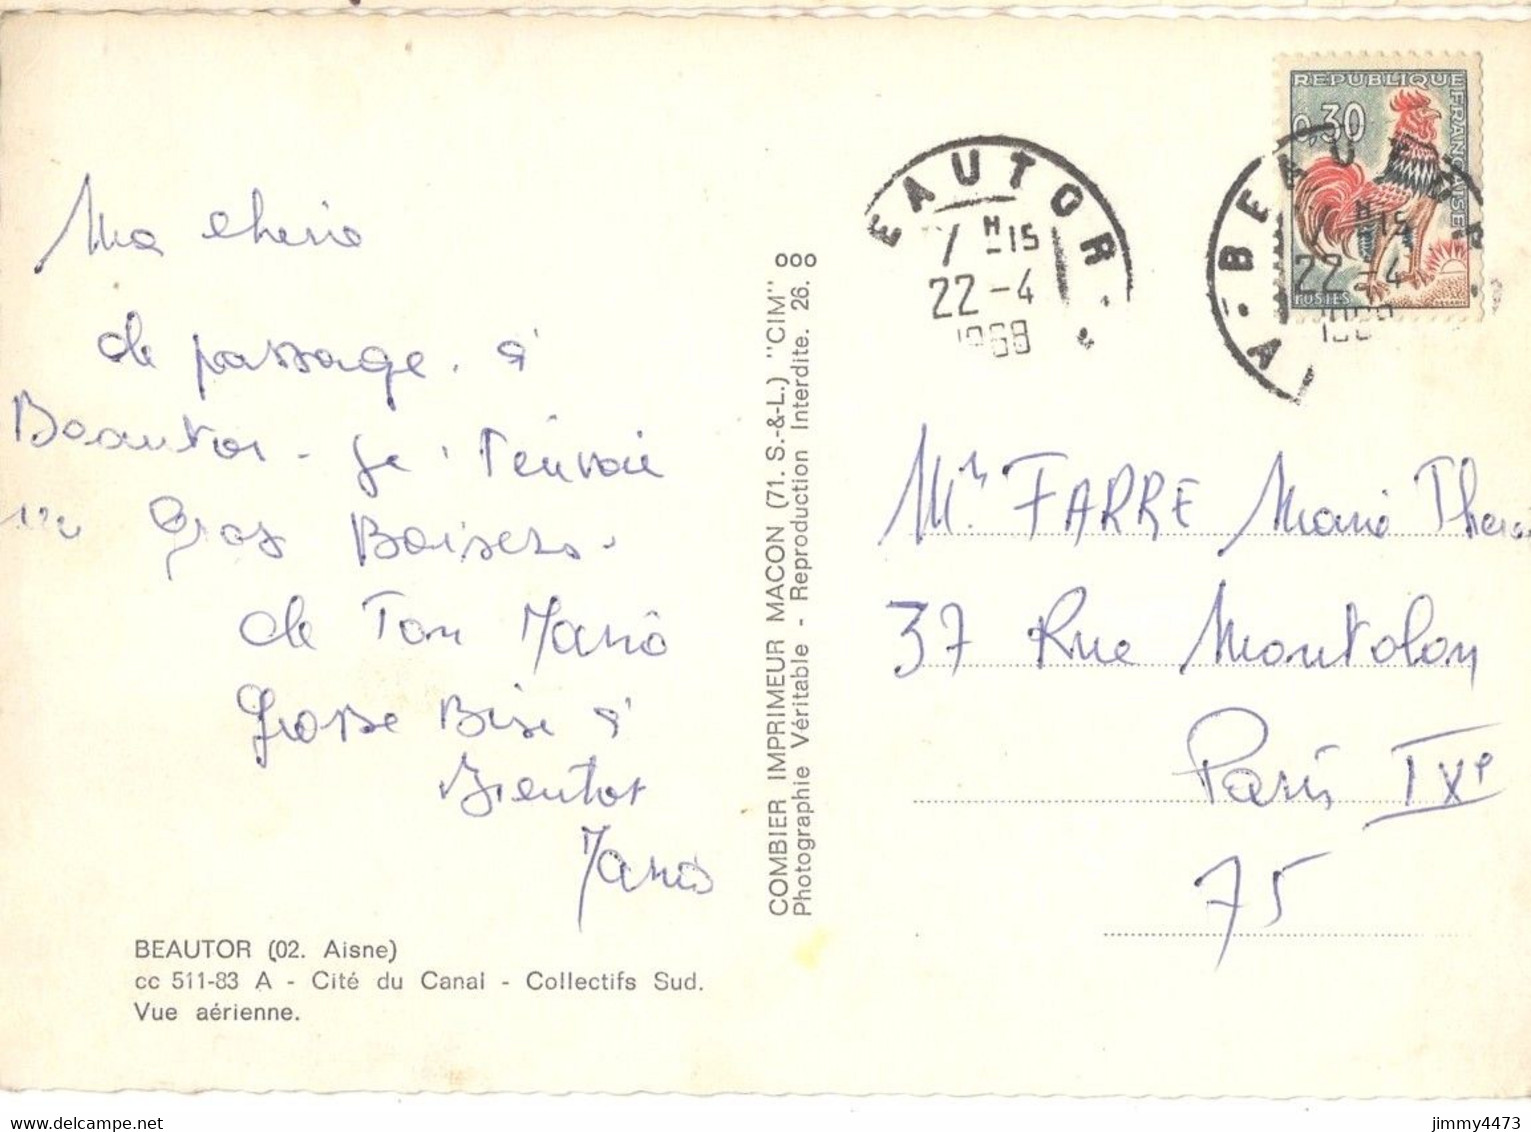 Ma cherie
de passage. a'
Beautor - je t'envoie
un Gros Baisers.
de Ton Mario
Grosse Bise a'
Bientot
Mario
BEAUTOR (02. Aisne)
cc 511-83 A - Cité du Canal - Collectifs Sud.
Vue aérienne.
COMBIER IMPRIMEUR MACON (71. S.-&-L.) "CIM"
Photographie Véritable - Reproduction Interdite. 26.
EAUTOR
7 H 15
22-4
1968
REPUBLIQUE FRANCAISE
0,30
POSTES
BEAUTOR
7 H 15
22-4
FARRE Marie Theres
37 Rue Montolon
Paris IXe
75
jimmy4473